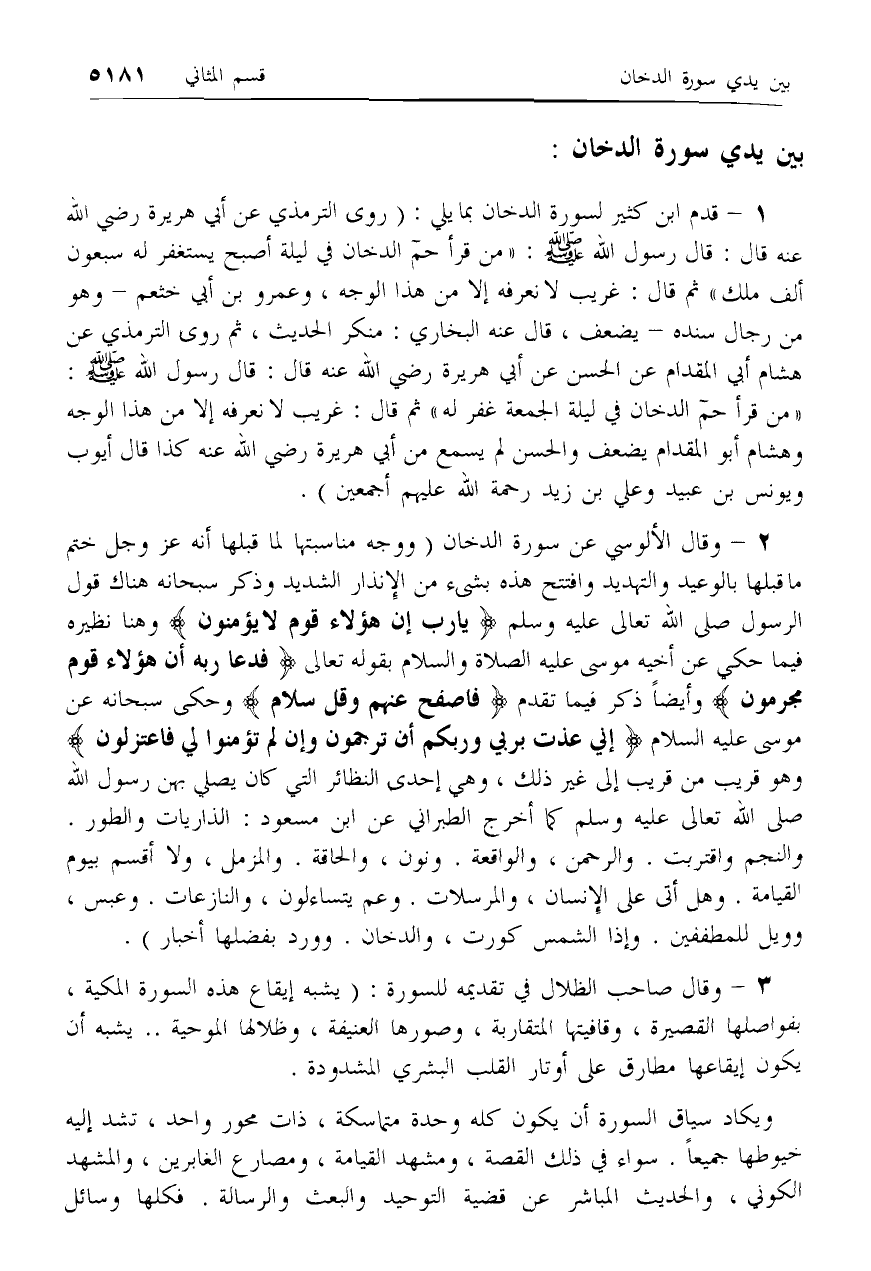 بين يدي سورة الدخان قسم المثاني ٥١٨١
بين يدي سورة الدخان :
١ – قدم ابن كثير لسورة الدخان بما يلي : ( روى الترمذي عن أبي هريرة رضي الله
عنه قال : قال رسول الله ﷺ : «من قرأ حمٓ الدخان في ليلة أصبح يستغفر له سبعون
ألف ملك» ثم قال : غريب لا نعرفه إلا من هذا الوجه ، وعمرو بن أبي خثعم – وهو
من رجال سنده – يضعف ، قال عنه البخاري : منكر الحديث ، ثم روى الترمذي عن
هشام أبي المقدام عن الحسن عن أبي هريرة رضي الله عنه قال : قال رسول الله ﷺ :
«من قرأ حمٓ الدخان في ليلة الجمعة غفر له» ثم قال : غريب لا نعرفه إلا من هذا الوجه
وهشام أبو المقدام يضعف والحسن لم يسمع من أبي هريرة رضي الله عنه كذا قال أيوب
ويونس بن عبيد وعلي بن زيد رحمة الله عليهم أجمعين ) .
٢ – وقال الألوسي عن سورة الدخان ( ووجه مناسبتها لما قبلها أنه عز وجل ختم
ما قبلها بالوعيد والتهديد وافتتح هذه بشيء من الإنذار الشديد وذكر سبحانه هناك قول
الرسول صلى الله تعالى عليه وسلم ﴿ يارب إن هؤلاء قوم لايؤمنون ﴾ وهنا نظيره
فيما حكي عن أخيه موسى عليه الصلاة والسلام بقوله تعالى ﴿ فدعا ربه أن هؤلاء قوم
مجرمون ﴾ وأيضاً ذكر فيما تقدم ﴿ فاصفح عنهم وقل سلام ﴾ وحكى سبحانه عن
موسى عليه السلام ﴿ إني عذت بربي وربكم أن ترجمون وإن لم تؤمنوا لي فاعتزلون ﴾
وهو قريب من قريب إلى غير ذلك ، وهي إحدى النظائر التي كان يصلي بهن رسول الله
صلى الله تعالى عليه وسلم كما أخرج الطبراني عن ابن مسعود : الذاريات والطور .
والنجم واقتربت . والرحمن ، والواقعة . ونون ، والحاقة . والمزمل ، ولا أقسم بيوم
القيامة . وهل أتى على الإنسان ، والمرسلات . وعم يتساءلون ، والنازعات . وعبس ،
وويل للمطففين . وإذا الشمس كورت ، والدخان . وورد بفضلها أخبار ) .
٣ – وقال صاحب الظلال في تقديمه للسورة : ( يشبه إيقاع هذه السورة المكية ،
بفواصلها القصيرة ، وقافيتها المتقاربة ، وصورها العنيفة ، وظلالها الموحية .. يشبه أن
يكون إيقاعها مطارق على أوتار القلب البشري المشدودة .
ويكاد سياق السورة أن يكون كله وحدة متماسكة ، ذات محور واحد ، تشد إليه
خيوطها جميعاً . سواء في ذلك القصة ، ومشهد القيامة ، ومصارع الغابرين ، والمشهد
الكوني ، والحديث المباشر عن قضية التوحيد والبعث والرسالة . فكلها وسائل